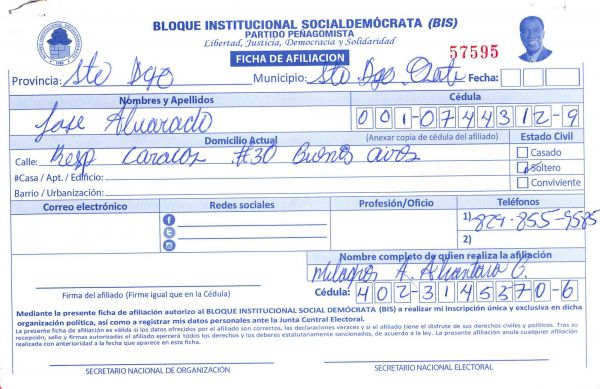 BLOQUE INSTITUCIONAL SOCIALDEMÓCRATA (BIS)
PARTIDO PEÑAGOMISTA
Libertad, Justicia, Democracia y Solidaridad
FICHA DE AFILIACION
57595
Provincia: Sto Dgo Municipio: Sto Dgo Oeste Fecha:
Nombres y Apellidos Cédula
Jose Alvarado 001-0744312-9
Domicilio Actual (Anexar copia de cédula del afiliado) Estado Civil
Calle: Resp Caracol #30 Buenos aires Casado
#Casa / Apt. / Edificio: Soltero
Barrio / Urbanización: Conviviente
Correo electrónico Redes sociales Profesión/Oficio Teléfonos
1) 829-855-9585
2)
Nombre completo de quien realiza la afiliación
Milagros A. Alcantara C.
Firma del afiliado (Firme igual que en la Cédula) Cédula: 402-3145370-6
Mediante la presente ficha de afiliación autorizo al BLOQUE INSTITUCIONAL SOCIAL DEMÓCRATA (BIS) a realizar mi inscripción única y exclusiva en dicha
organización política, así como a registrar mis datos personales ante la Junta Central Electoral.
La presente ficha de afiliación es válida si los datos ofrecidos por el afiliado son correctos, las declaraciones veraces y si el afiliado tiene el disfrute de sus derechos civiles y políticos. Tras su
recepción, sello y firmas autorizadas el afiliado ejercerá todos los derechos y los deberes estatutariamente sancionados, de acuerdo a la ley. La presente afiliación anula cualquier afiliación
realizada con anterioridad a la fecha que aparece en esta ficha.
SECRETARIO NACIONAL DE ORGANIZACIÓN SECRETARIO NACIONAL ELECTORAL